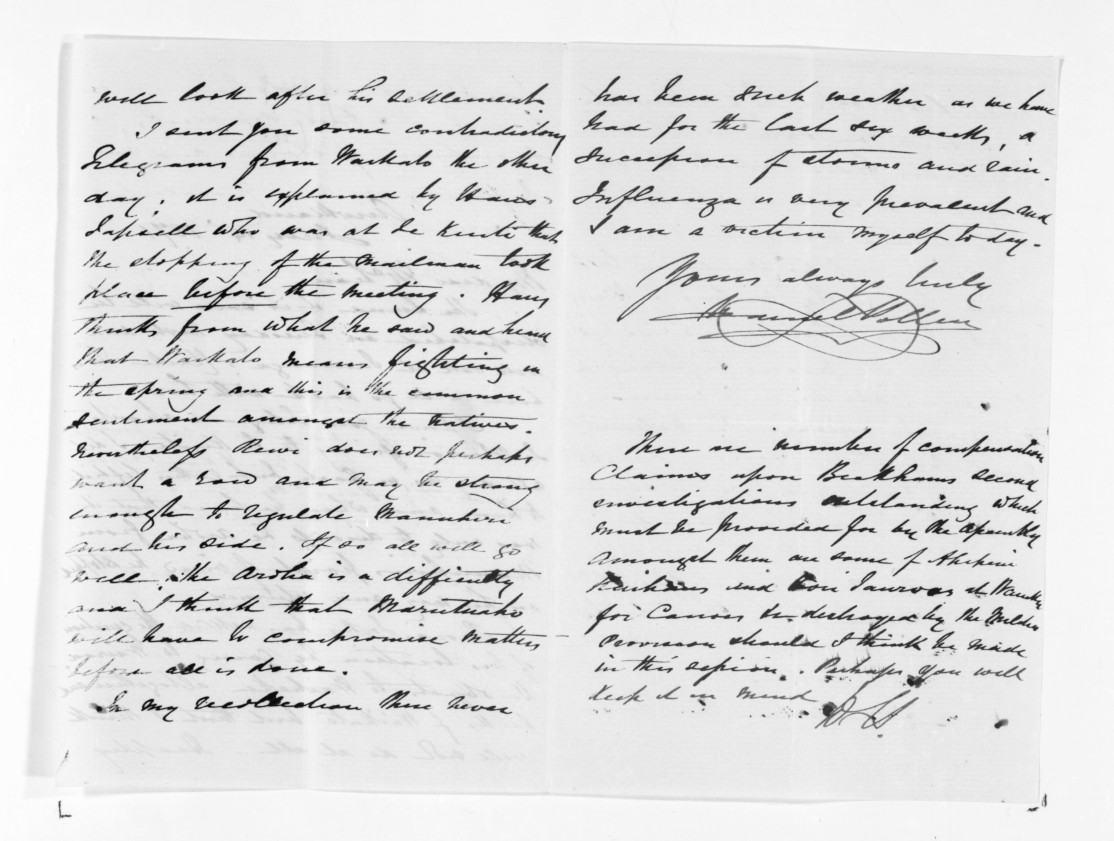 will look after his settlement.
I sent you some contradictory
Telegrams from Waikato the other
day, it is explained by Hans
Tapsell who was at Te Kuiti that
the stopping of the mailman took
place before the meeting. Hans
thinks from what he saw and heard
that Waikato means fighting in
the spring and this is the common
sentiment amongst the natives.
Nevertheless Rewi does not perhaps
want a row and may be strong
enough to regulate Manuhiri
and his side. If so all will go
well. The Aroha is a difficulty
and I think that Marutuahu
will have to compromise matters
before all is done.
In my recollection there never
has been such weather as we have
had for the last six weeks, a
succession of storms and rain.
Influenza is very prevalent and
I am a victim myself to day.
Yours always truly
Daniel Pollen
There are number of compensation
Claims upon Beckhams second
investigations outstanding which
must be provided for by the Assembly
amongst them are some of Ahipene
Kaihau and at
for Canoes destroyed by the
Provision should I think be made
in this session. Perhaps you will
keep it in mind